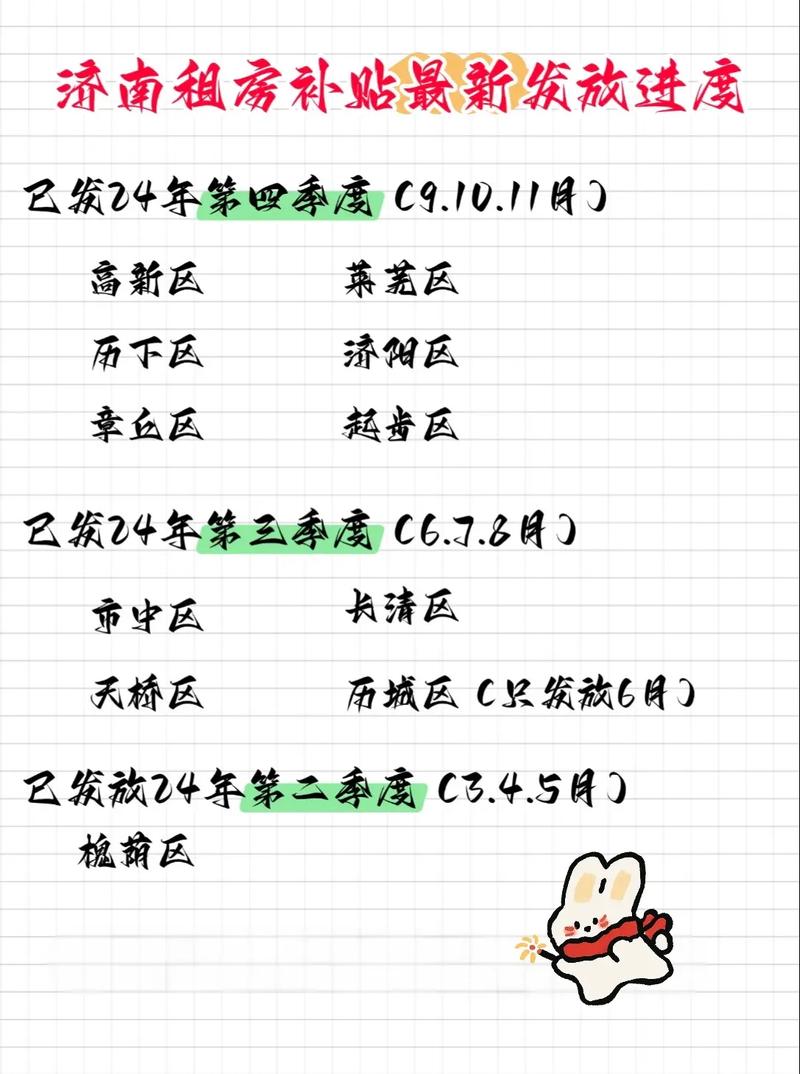 济南租房补贴最新发放进度
已发24年第四季度（9.10.11月）
高新区 莱芜区
历下区 济阳区
章丘区 起步区
已发24年第三季度（6.7.8月）
市中区 长清区
天桥区 历城区（只发放6月）
已发放24年第二季度（3.4.5月）
槐荫区